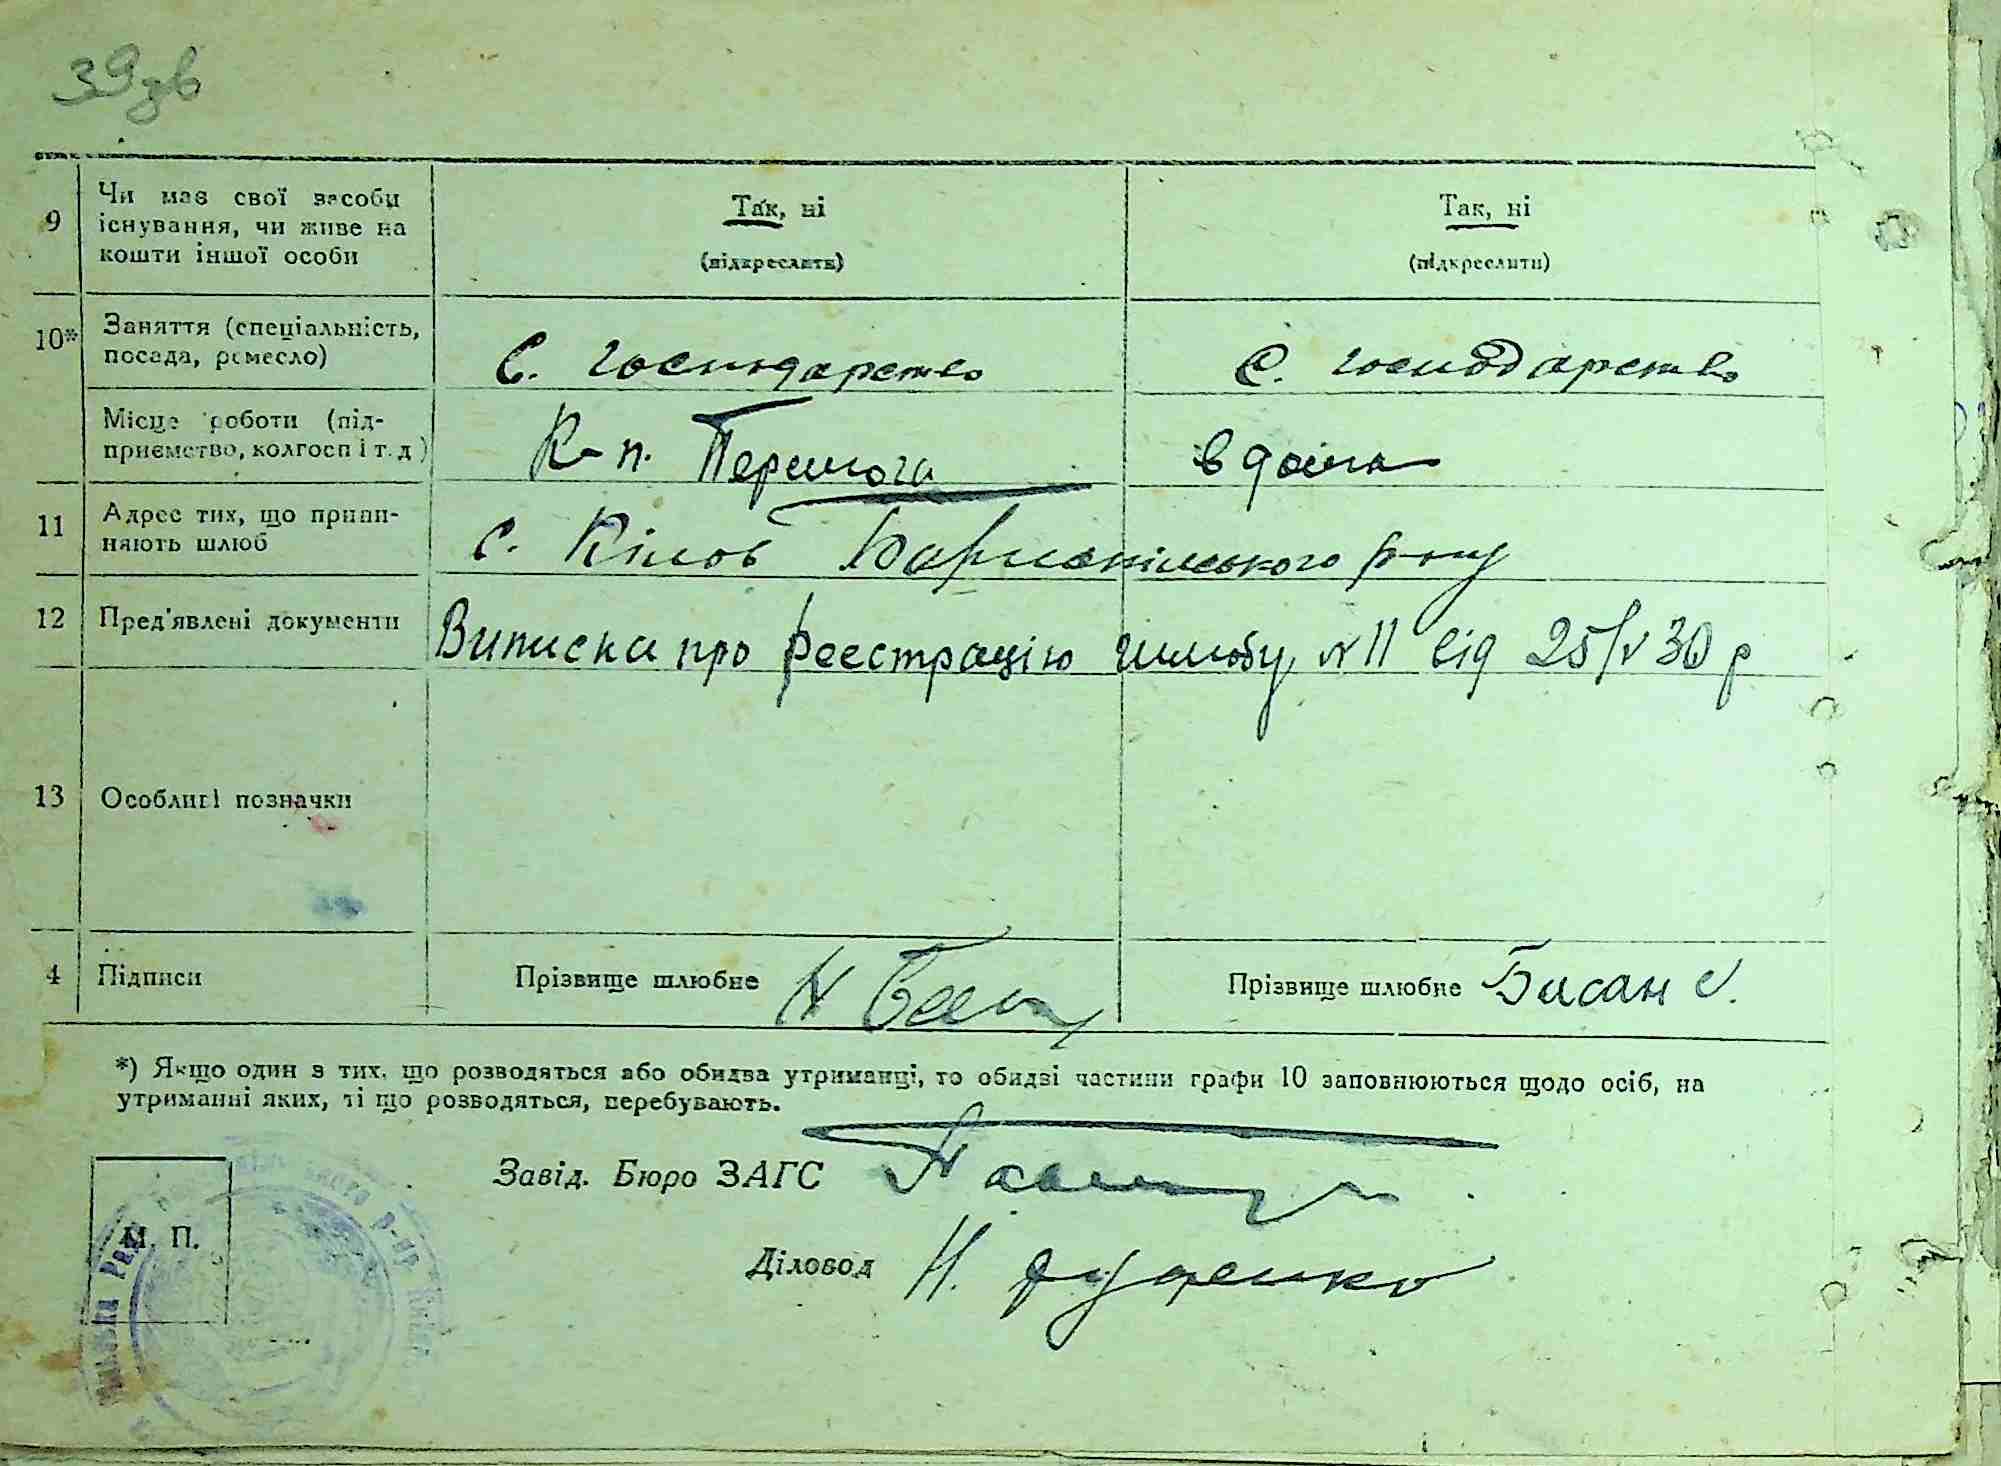 39зв
9 Чи має свої засоби існування, чи живе на кошти іншої особи
Так, ні
(підкреслити)
Так, ні
(підкреслити)
10* Заняття (спеціальність, посада, ремесло)
С. господарство
С. господарство
Місце роботи (підприємство, колгосп і т. д.)
К-п. Перемога
вдома
11 Адрес тих, що припиняють шлюб
с. Кілов Бориспільського р-ну
12 Пред'явлені документи
Виписка про реєстрацію шлюбу №11 від 25/V 30 р
13 Особливі позначки
4 Підписи
Прізвище шлюбне
Прізвище шлюбне Бисан
*) Якщо один з тих, що розводяться або обидва утриманці, то обидві частини графи 10 заповнюються щодо осіб, на
утриманні яких, ті що розводяться, перебувають.
Завід. Бюро ЗАГС
М. П.
Діловод Н. Руденко